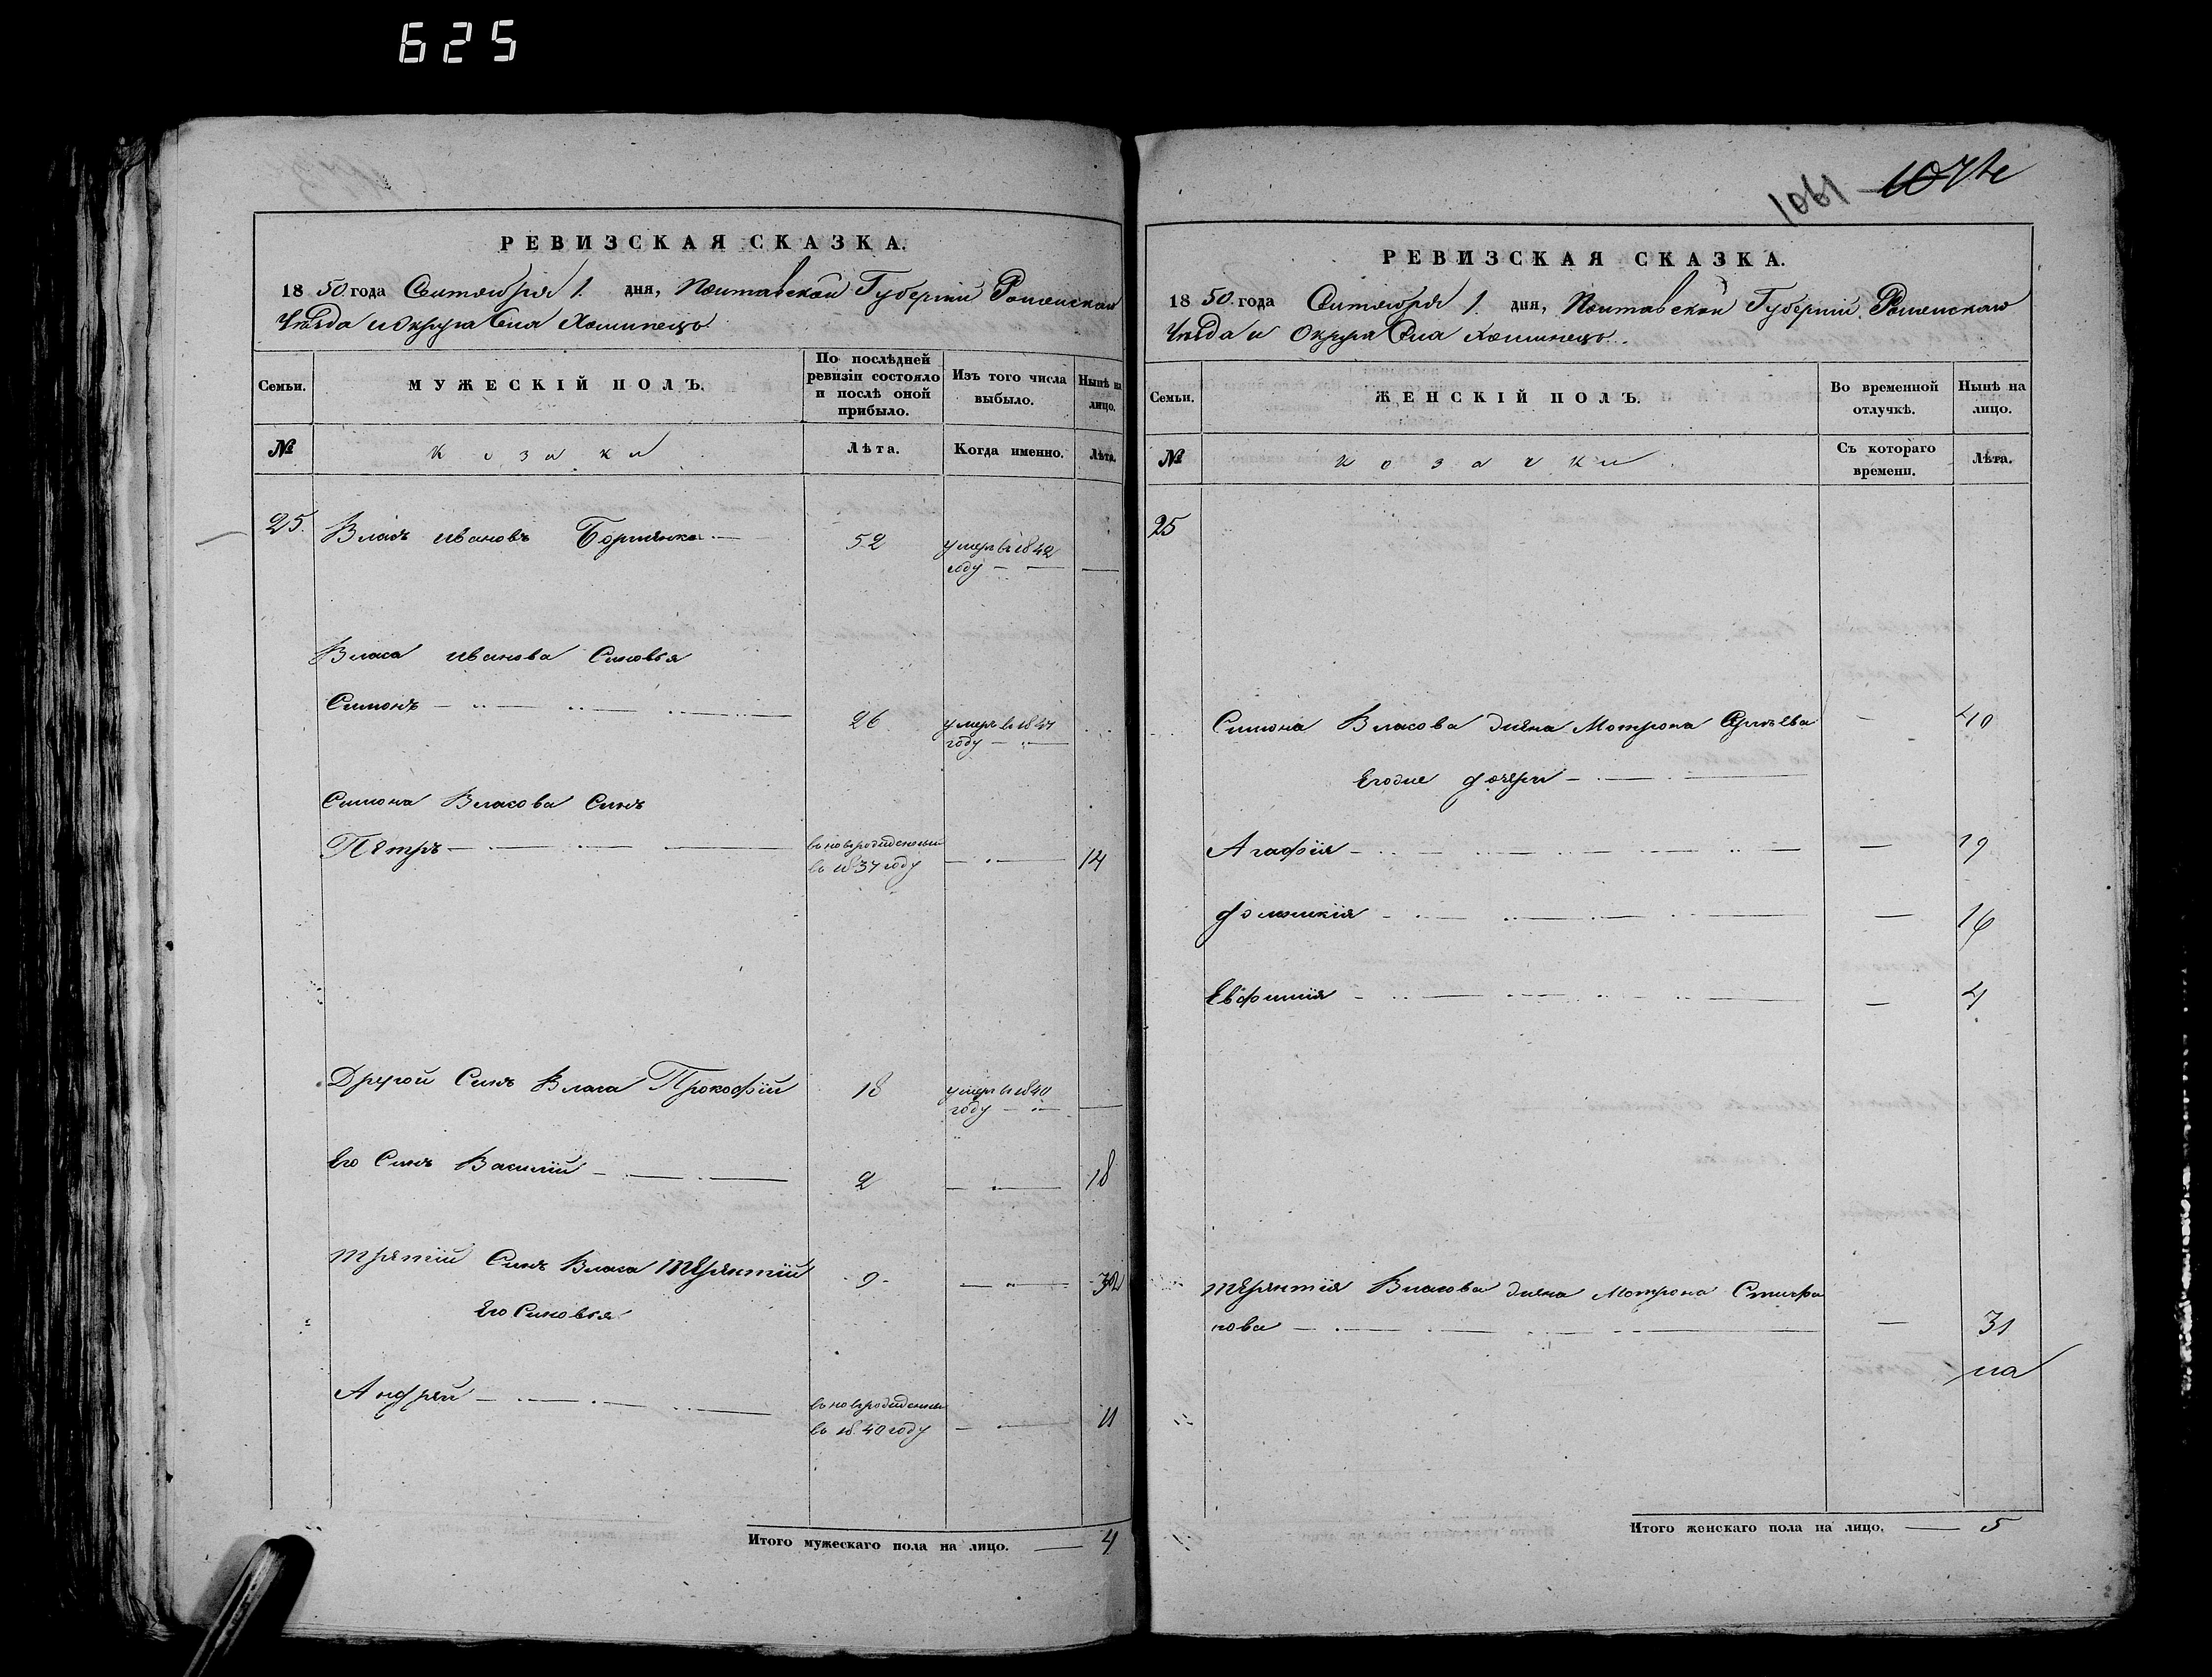 625
РЕВИЗСКАЯ СКАЗКА.
1850 года Сентября 1. дня, Полтавской Губерніи Роменскаго
Уезда и округа Села Хоминецъ.
Семьи.
МУЖЕСКІЙ ПОЛЪ.
По послѣдней
ревизіи состояло
и послѣ оной
прибыло.
Изъ того числа
выбыло.
Нынѣ на
лицо.
№
козаки
Лѣта.
Когда именно.
Лѣта.
25. Власъ Ивановъ 52 умеръ въ 1842
году
Власа Иванова Синовья
Симонъ 26 умеръ въ 1847
году
Симона Власова Синъ
Петръ вновьрожденный
въ 1837 году 14
Другой Синъ Власа Прокофій 18 умеръ въ 1840
году
Его Синъ Василій 2 18
Третій Синъ Власа Терентій 9 32
Его Синовья
Андрей вновьрожденный
въ 1840 году 11
Итого мужескаго пола на лицо. 4
1061
РЕВИЗСКАЯ СКАЗКА.
1850 года Сентября 1. дня, Полтавской Губерніи Роменскаго
Уезда и Округа Села Хоминецъ.
Семьи.
ЖЕНСКІЙ ПОЛЪ.
Во временной
отлучкѣ.
Нынѣ на
лицо.
№
козачки
Съ котораго
времени.
Лѣта.
25
Симона Власова жена Мотрона 40
Егоже дочери
Агафія 19
16
Евфимія 4
Терентія Власова жена Мотрона Стефа
нова 31
Итого женскаго пола на лицо. 5